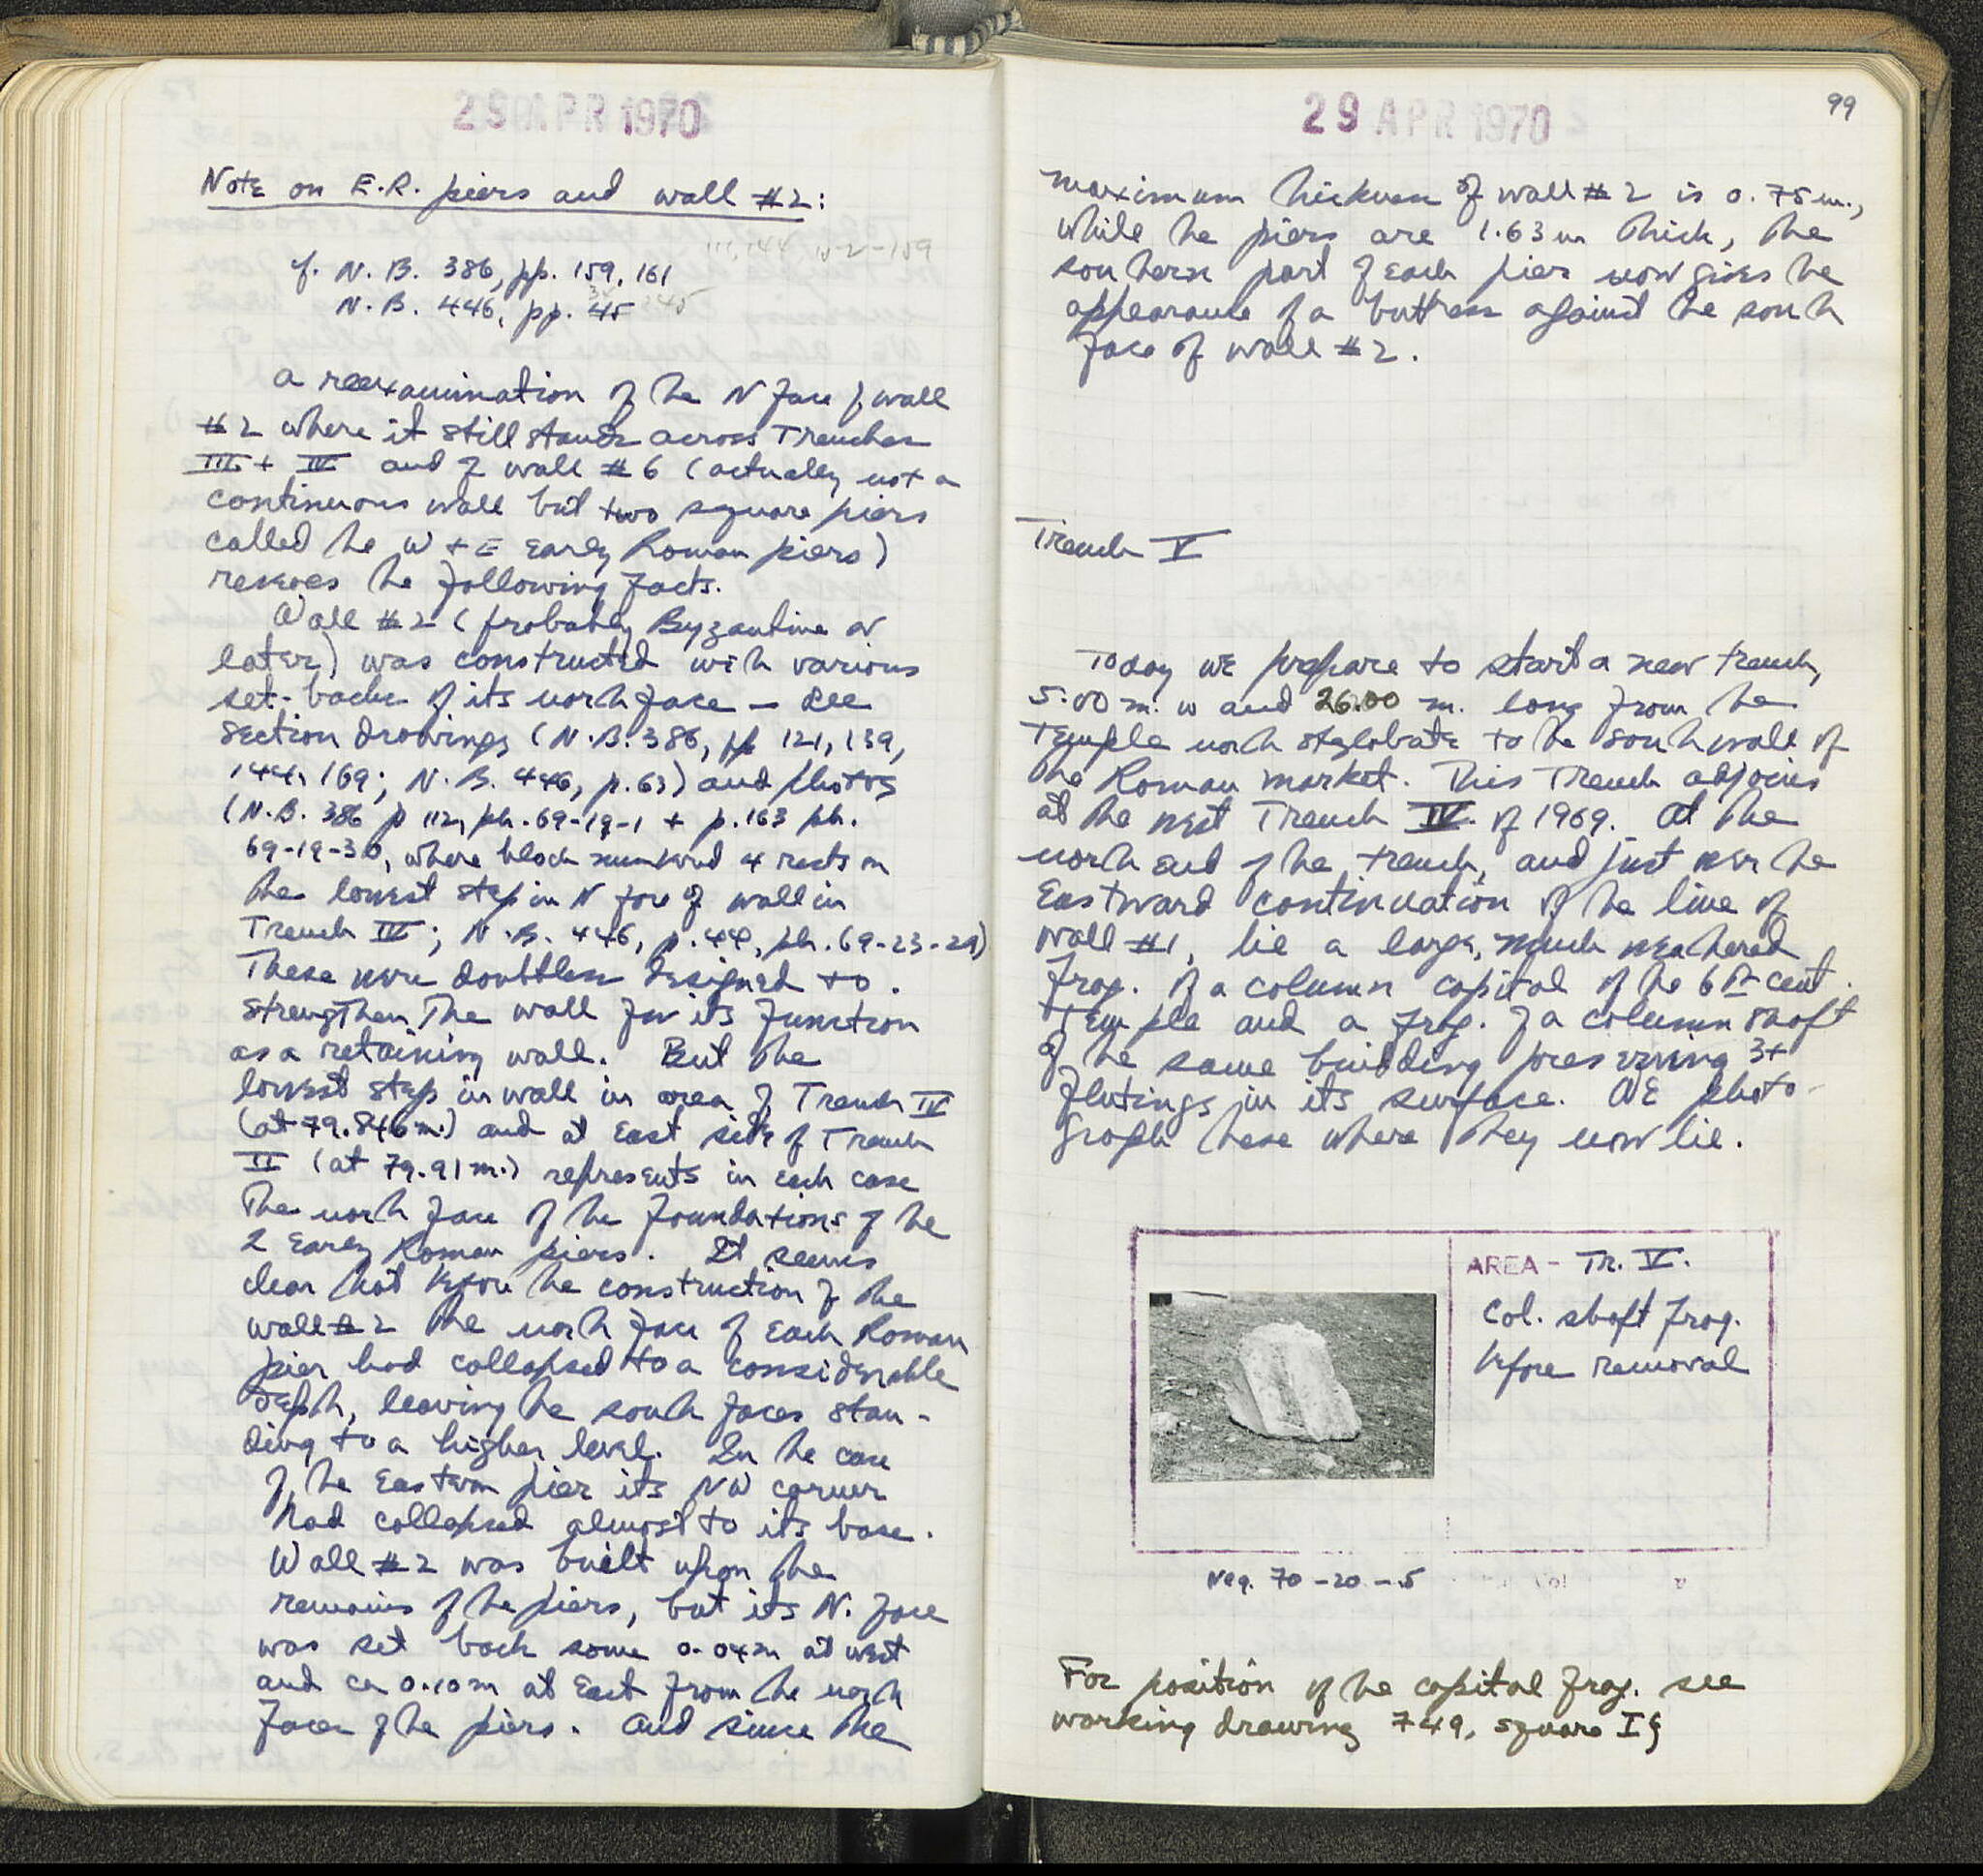 29 APR 1970
Note on E.R. piers and wall #2:
cf. N.B. 386, pp. 159, 161
N.B. 446, pp. 45
a reexamination of the N face of wall
#2 where it still stands across Trenches
III + IV and of wall #6 (actually not a
continuous wall but two square piers
called the W + E Early Roman piers)
reveals the following facts.
Wall #2 (probably Byzantine or
later) was constructed with various
set-backs of its north face — see
section drawings (N.B. 386, pp 121, 139,
144, 169; N.B. 446, p. 63) and photos
(N.B. 386 p 112, ph. 69-19-1 + p. 163 ph.
69-19-30, where block numbered 4 rests on
the lowest step in N face of wall in
Trench III; N.B. 446, p. 44, ph. 69-23-29)
These were doubtless designed to
strengthen the wall for its function
as a retaining wall. But the
lowest step in wall in area of Trench IV
(at 79.846 m.) and at East side of Trench
II (at 79.91 m.) represents in each case
the north face of the foundations of the
2 Early Roman piers. It seems
clear that before the construction of the
wall #2 the north face of each Roman
pier had collapsed to a considerable
depth, leaving the south faces stan-
ding to a higher level. In the case
of the Eastern pier its NW corner
had collapsed almost to its base.
Wall #2 was built upon the
remains of the piers, but its N. face
was set back some 0.04 m at west
and ca 0.10 m at East from the north
faces of the piers. And since the
99
29 APR 1970
maximum thickness of wall #2 is 0.75 m.,
while the piers are 1.63 m thick, the
southern part of each pier now gives the
appearance of a buttress against the south
face of wall #2.
Trench V
Today we prepare to start a new trench,
5.00 m. w and 26.00 m. long from the
Temple north stylobate to the south wall of
the Roman market. This Trench adjoins
at the west Trench IV of 1969. At the
north end of the trench, and just over the
Eastward continuation of the line of
wall #1, lie a large, much weathered
frag. of a column capital of the 6th cent.
Temple and a frag. of a column shaft
of the same building preserving 3+
flutings in its surface. We photo-
graph these where they now lie.
AREA - Tr. V.
Col. shaft frag.
before removal
Neg. 70-20-5
For position of the capital frag. see
working drawing 749, square